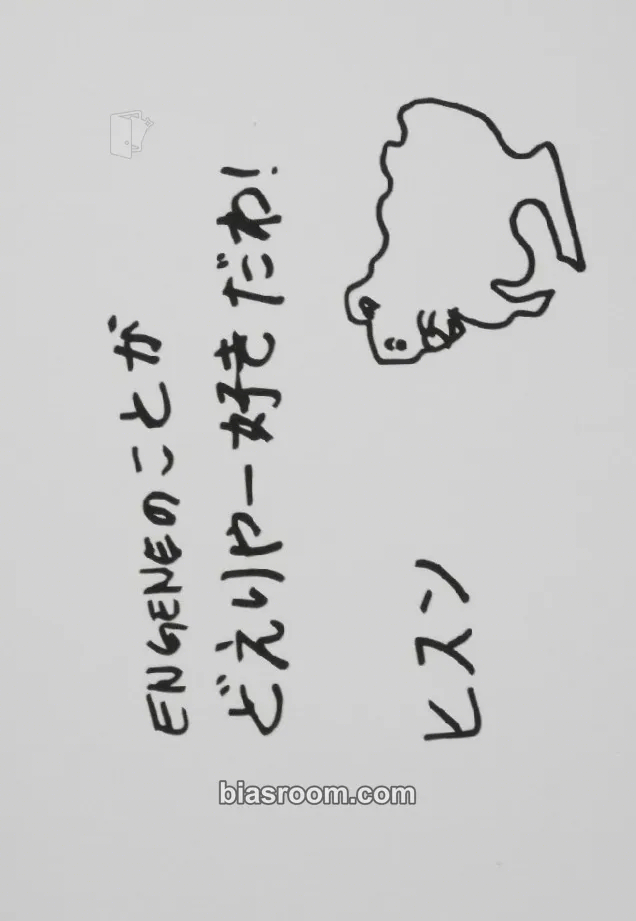 ENGENEのことが
どえりゃー好きだわ!
ヒスン
biasroom.com